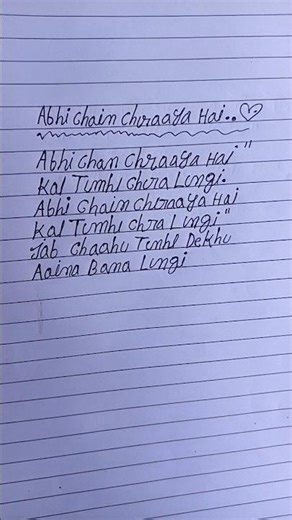 Abhi Chain Churaaya Hai..
Abhi Chan Chraaya Hai"
Kal Tumhe Chura Lungi.
Abhi Chain Chraaya Hai
Kal Tumhe Chra Lungi"
Jab Chaahu Tumhe Dekhu
Aaina Bana Lungi